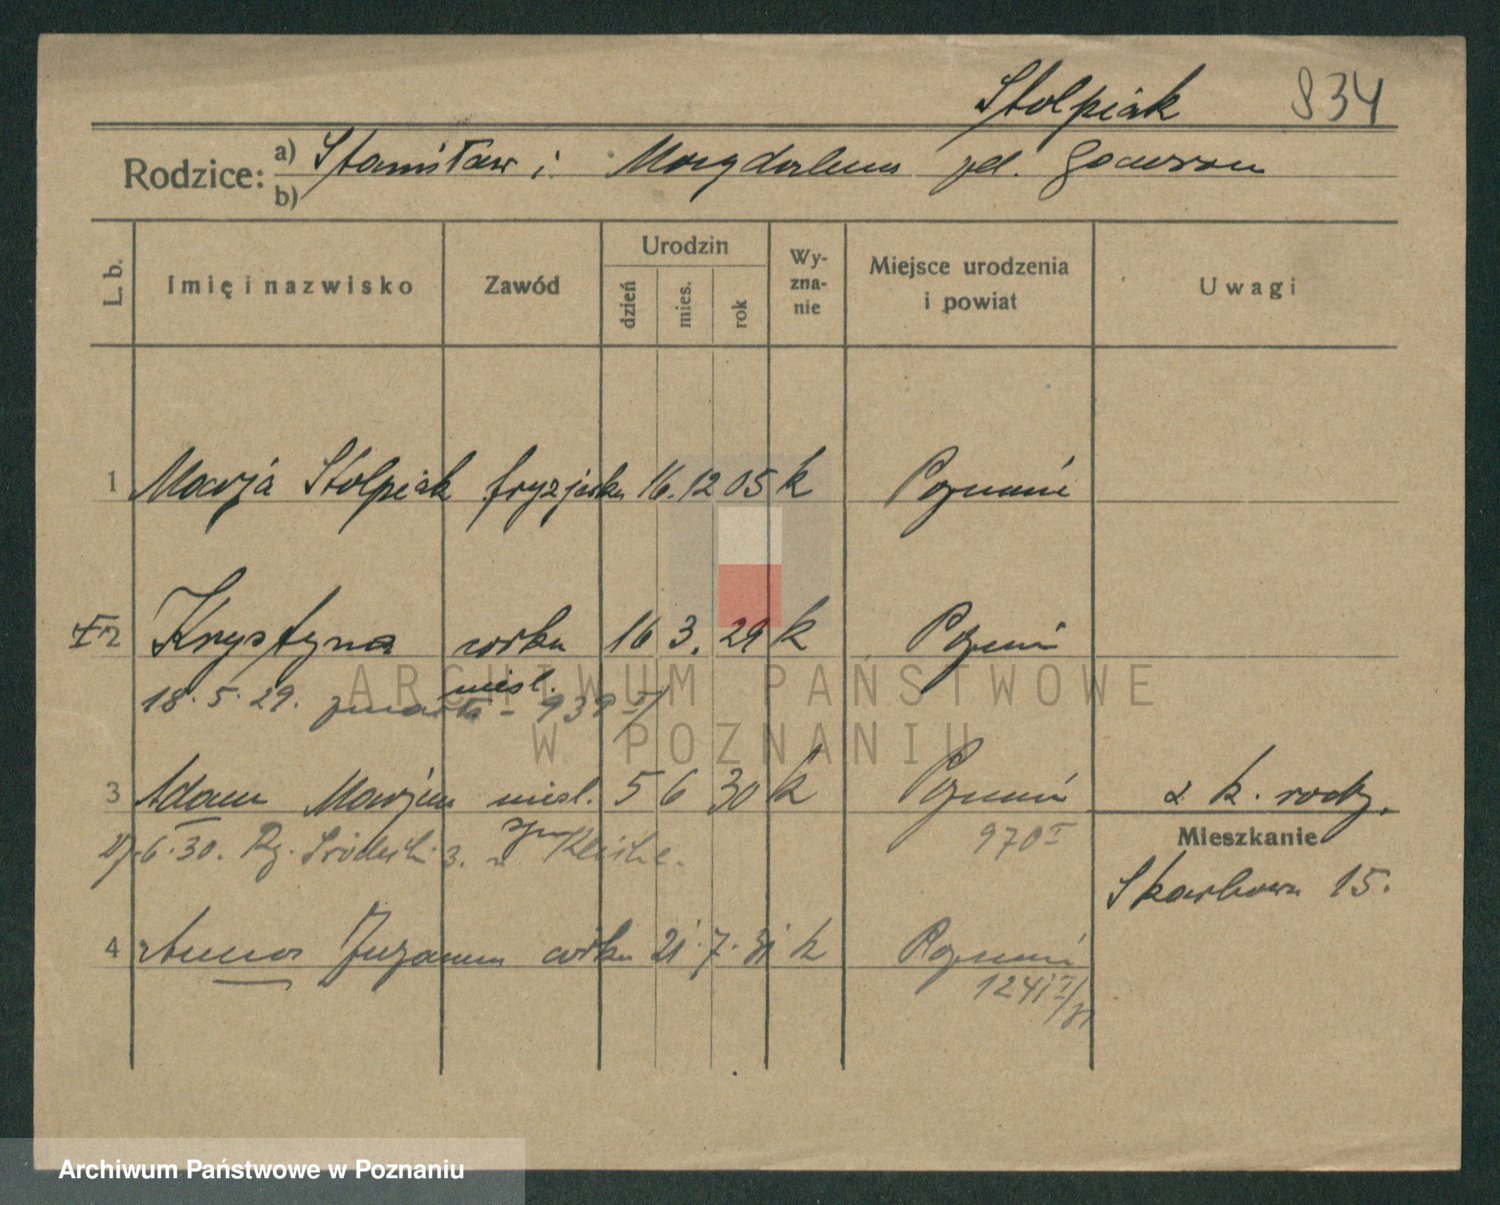 Stolpiak 834
Rodzice: a) Stanisław i Magdalena zd.
b)
L. b. Imię i nazwisko Zawód Urodzin dzień mies. rok Wy-zna-nie Miejsce urodzenia i powiat Uwagi
1 Marja Stolpiak fryzjerka 16. 12 05 k Poznań
2 Krystyna córka 16 3. 29 k Poznań
nieśl.
18. 5. 29. zmarła - 939 I/
3 Adam Marjan nieśl. 5 6 30 k Poznań k. rodz.
syn
27. 6. 30. 3. 970 I
Mieszkanie
Skarbowa 15.
4 Anna Zuzanna córka 21. 7. 31 k Poznań
1241 I/31
ARCHIWUM PAŃSTWOWE
W POZNANIU
Archiwum Państwowe w Poznaniu